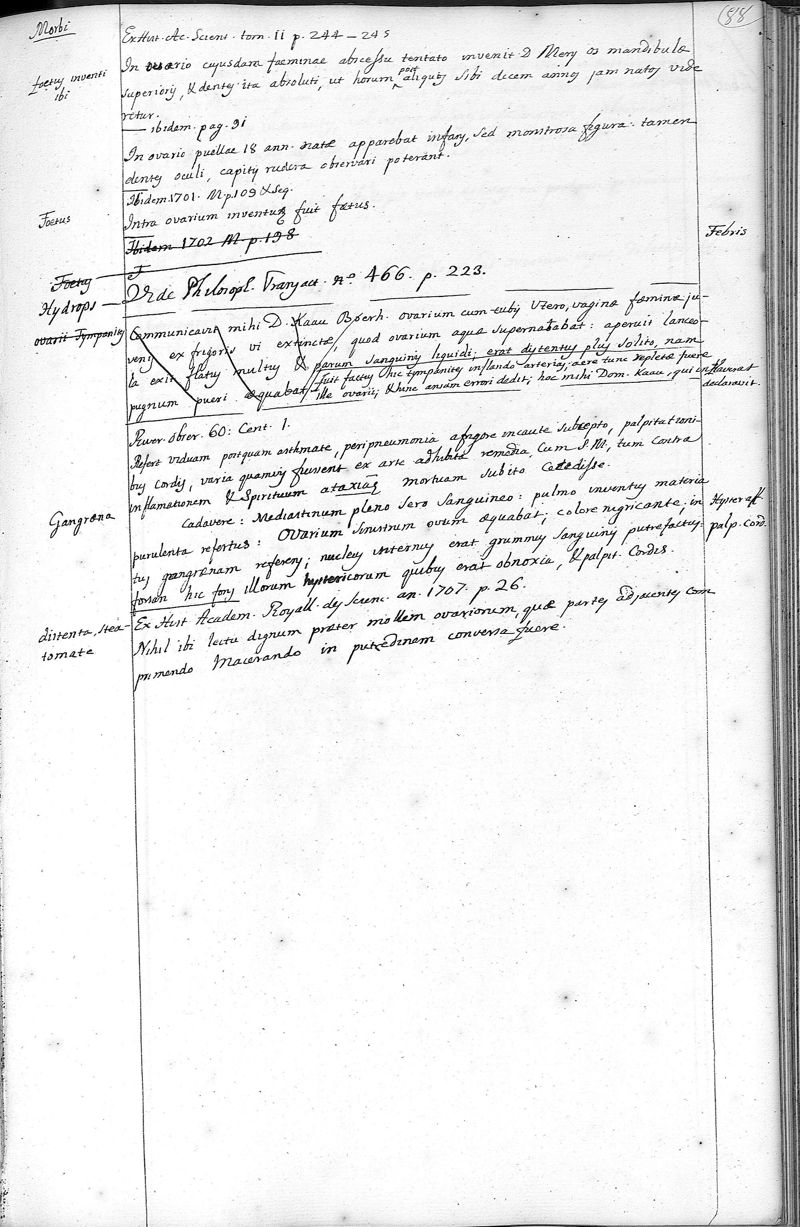 88
Morbi
Ex Hist. Ac. Scienc. tom. II p. 244 – 245
foetus inventi
ibi
In ovario cujusdam faeminae abscessu tentato invenit D Mery os mandibulae
superioris, & dentes ita absoluti, ut horum post aliquis sibi decem annos jam natos vide
retur.
— ibidem. pag. 91
In ovario puellae 18 ann. natae apparebat infans, sed monstrosa figura: tamen
dentes oculi, capitis rudera observari poterant.
Ibidem 1701. M p 109 & seq.
Foetus
Intra ovarium inventus fuit faetus.
Ibidem 1702 M. p. 198
Febris
Foetus
Hydrops
Vide Philosoph. Transact. No 466. p. 223.
ovarii Tympanites
Communicavit mihi D. Kaau Boerh. ovarium cum tubis Utero, vaginae faeminae ju-
venis ex frigoris vi extinctae, quod ovarium aquae supernatabat: aperuit lanceo-
la exit flatus multus & parum sanguinis liquidi; erat distentus plus solito, nam
pugnum pueri aequabat fuit factus hic tympanites inflando arterias; aere tunc repletae fuere
ille ovarii, & hinc ansam errori dedit; hoc mihi Dom. Kaau, qui
declaravit.
River. obser. 60: Cent. 1.
Refert viduam postquam asthmate, peripneumonia a frigore incaute suscepto, palpitationi-
bus cordis, varia quamvis fuissent ex arte adhibita remedia, Cum S M, tum contra
inflamationem & Spirituum ataxias mortuam subito cecidisse.
Gangraena
Cadavere: Mediastinum pleno sero sanguineo: pulmo inventus materia
Hyster aff.
palp. Cord.
purulenta refertus: Ovarium sinistrum ovum aequabat; colore nigricante, in
tus gangraenam referens; nucleus internus erat grumus sanguinis putrefactus:
forsan hic fons illorum hystericorum quibus erat obnoxia, & palpit. Cordis.
Ex Hist Academ. Royall. des Scienc. an. 1707. p. 26.
distenta, stea-
tomate
Nihil ibi lectu dignum praeter molem ovariorum, quae partes adjacentes com
primendo macerando in putredinem conversa fuere.